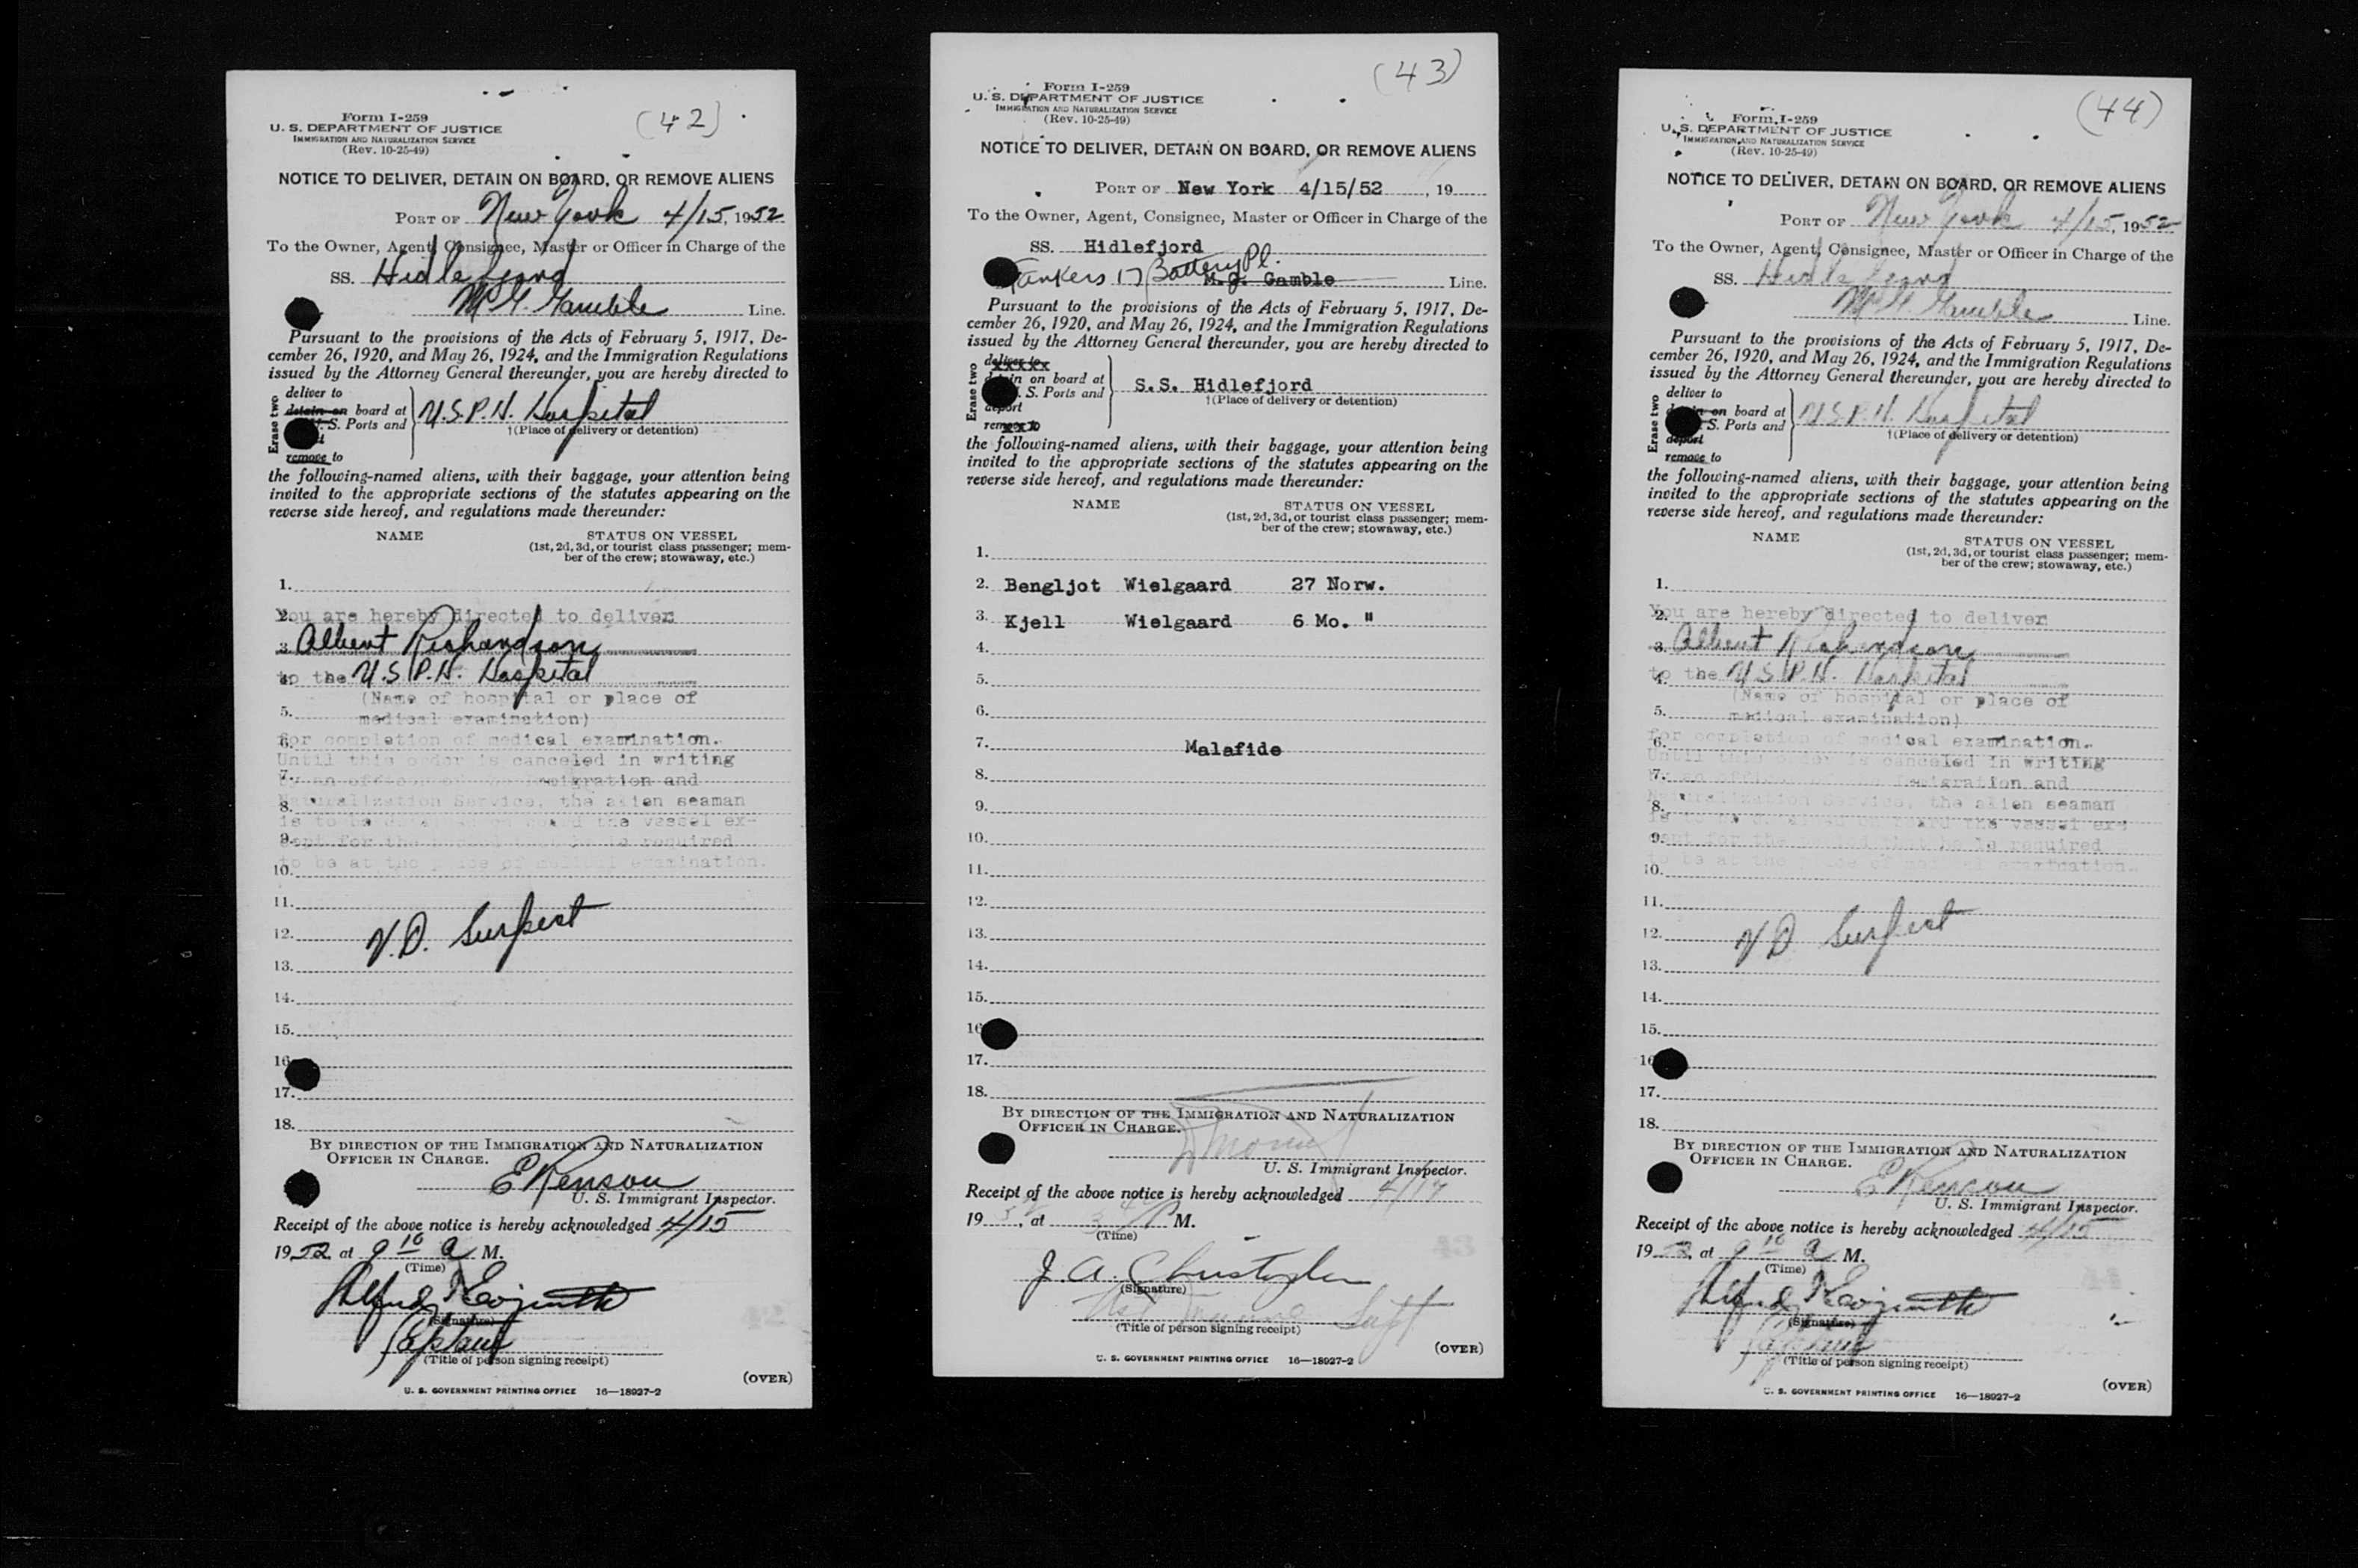 (42)
Form I-259
U. S. DEPARTMENT OF JUSTICE
IMMIGRATION AND NATURALIZATION SERVICE
(Rev. 10-25-49)
NOTICE TO DELIVER, DETAIN ON BOARD, OR REMOVE ALIENS
PORT OF New York 4/15, 1952
To the Owner, Agent, Consignee, Master or Officer in Charge of the
SS. Hidlefjord
M. G. Gamble Line.
Pursuant to the provisions of the Acts of February 5, 1917, De-
cember 26, 1920, and May 26, 1924, and the Immigration Regulations
issued by the Attorney General thereunder, you are hereby directed to
Erase two
deliver to
detain on board at
S. Ports and
remove to
U.S.P.H. Hospital
†(Place of delivery or detention)
the following-named aliens, with their baggage, your attention being
invited to the appropriate sections of the statutes appearing on the
reverse side hereof, and regulations made thereunder:
NAME STATUS ON VESSEL
(1st, 2d, 3d, or tourist class passenger; mem-
ber of the crew; stowaway, etc.)
1.
2. You are hereby directed to deliver
3. Albert Richardson
4. to the U.S.P.H. Hospital
(Name of hospital or place of
5. medical examination)
6. for completion of medical examination.
Until this order is canceled in writing
7. by an officer of the Immigration and
8. Naturalization Service, the alien seaman
is to be detained on board the vessel ex-
9. cept for the period that he is required
to be at the place of medical examination.
10.
11.
12. V.D. Suspect
13.
14.
15.
16.
17.
18.
BY DIRECTION OF THE IMMIGRATION AND NATURALIZATION
OFFICER IN CHARGE.
E Renson
U. S. Immigrant Inspector.
Receipt of the above notice is hereby acknowledged 4/15
1952, at 9 10 a M.
(Time)
(Signature)
Captain
(Title of person signing receipt)
42
(OVER)
U. S. GOVERNMENT PRINTING OFFICE 16—18927-2
(43)
Form I-259
U. S. DEPARTMENT OF JUSTICE
IMMIGRATION AND NATURALIZATION SERVICE
(Rev. 10-25-49)
NOTICE TO DELIVER, DETAIN ON BOARD, OR REMOVE ALIENS
PORT OF New York 4/15/52, 19
To the Owner, Agent, Consignee, Master or Officer in Charge of the
SS. Hidlefjord
Tankers 17 Battery Pl.
M. G. Gamble Line.
Pursuant to the provisions of the Acts of February 5, 1917, De-
cember 26, 1920, and May 26, 1924, and the Immigration Regulations
issued by the Attorney General thereunder, you are hereby directed to
Erase two
deliver to
detain on board at
S. Ports and
deport
remove to
S.S. Hidlefjord
†(Place of delivery or detention)
the following-named aliens, with their baggage, your attention being
invited to the appropriate sections of the statutes appearing on the
reverse side hereof, and regulations made thereunder:
NAME STATUS ON VESSEL
(1st, 2d, 3d, or tourist class passenger; mem-
ber of the crew; stowaway, etc.)
1.
2. Bengljot Wielgaard 27 Norw.
3. Kjell Wielgaard 6 Mo. "
4.
5.
6.
7. Malafide
8.
9.
10.
11.
12.
13.
14.
15.
16
17.
18.
BY DIRECTION OF THE IMMIGRATION AND NATURALIZATION
OFFICER IN CHARGE.
U. S. Immigrant Inspector.
Receipt of the above notice is hereby acknowledged 4/17
1952, at P M.
(Time)
43
J. A. Christopher
(Signature)
Supt
(Title of person signing receipt)
(OVER)
U. S. GOVERNMENT PRINTING OFFICE 16—18927-2
(44)
Form I-259
U. S. DEPARTMENT OF JUSTICE
IMMIGRATION AND NATURALIZATION SERVICE
(Rev. 10-25-49)
NOTICE TO DELIVER, DETAIN ON BOARD, OR REMOVE ALIENS
PORT OF New York 4/15, 1952
To the Owner, Agent, Consignee, Master or Officer in Charge of the
SS. Hidlefjord
M. G. Gamble Line.
Pursuant to the provisions of the Acts of February 5, 1917, De-
cember 26, 1920, and May 26, 1924, and the Immigration Regulations
issued by the Attorney General thereunder, you are hereby directed to
Erase two
deliver to
detain on board at
S. Ports and
deport
remove to
U.S.P.H. Hospital
†(Place of delivery or detention)
the following-named aliens, with their baggage, your attention being
invited to the appropriate sections of the statutes appearing on the
reverse side hereof, and regulations made thereunder:
NAME STATUS ON VESSEL
(1st, 2d, 3d, or tourist class passenger; mem-
ber of the crew; stowaway, etc.)
1.
2. You are hereby directed to deliver
3. Albert Richardson
4. to the U.S.P.H. Hospital
(Name of hospital or place of
5. medical examination)
6. for completion of medical examination.
Until this order is canceled in writing
7. by an officer of the Immigration and
8. Naturalization Service, the alien seaman
is to be detained on board the vessel exc
9. cept for the period that he is required
to be at the place of medical examination.
10.
11.
12. V D Suspect
13.
14.
15.
16
17.
18.
BY DIRECTION OF THE IMMIGRATION AND NATURALIZATION
OFFICER IN CHARGE.
E Renson
U. S. Immigrant Inspector.
Receipt of the above notice is hereby acknowledged 4/15
1952, at 9 10 a M.
(Time)
44
(Signature)
Captain
(Title of person signing receipt)
(OVER)
U. S. GOVERNMENT PRINTING OFFICE 16—18927-2